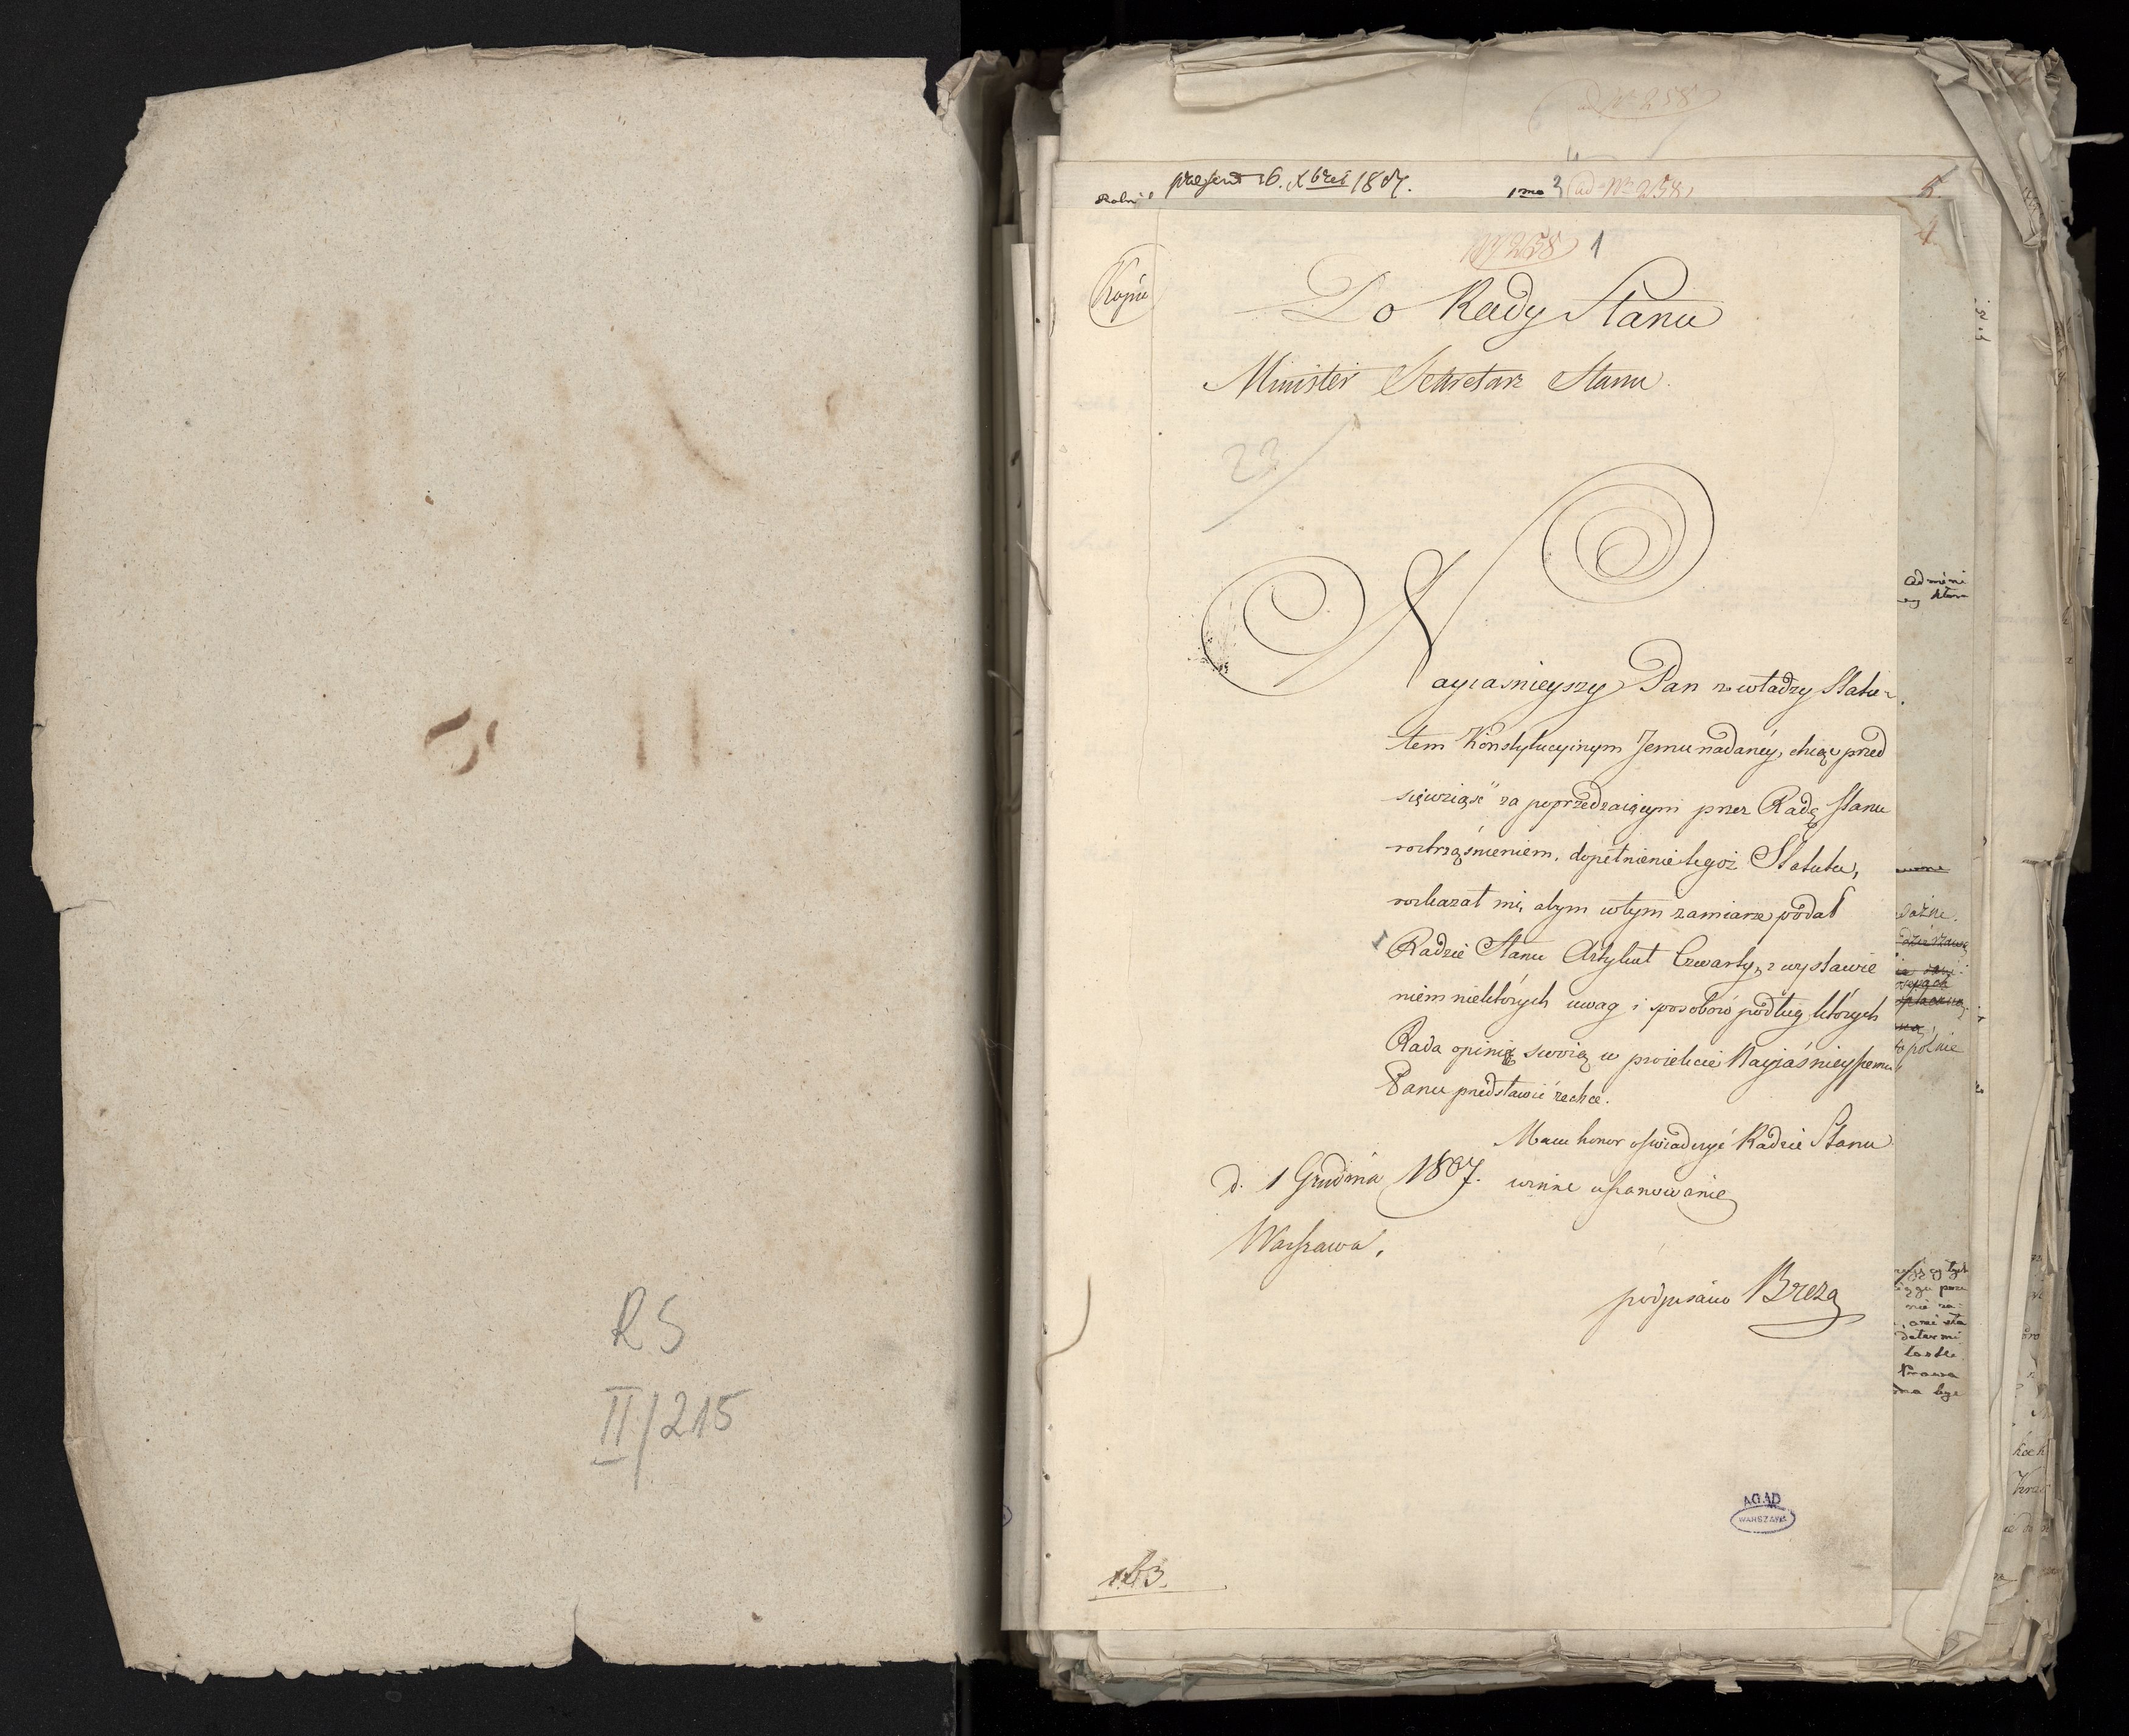 RS
II/215
ad No 258
praesent 16. Xbris 1807.
1mo 3 ad No 258
5
4
No 258 1
Kopia
Do Rady Stanu
Minister Sekretarz Stanu
23
Nayiasnieyszy Pan z władzy Statu=
tem Konstytucyinym Jemu nadaney, chcąc przed
sięwziąść za poprzedzaiącym przez Radę Stanu
roztrząśnieniem, dopełnienie tegoż Statutu,
rozkazał mi, abym w tym zamiarze podał
Radzie Stanu Artykuł Czwarty, z wystawie
niem niektórych uwag i sposobów podług których
Rada opinię swoią w proiekcie Nayiaśnieyszemu
Panu przedstawić zechce.
Mam honor oświadczyć Radzie Stanu
winne uszanowanie
d. 1 Grudnia 1807.
Warszawa,
podpisano Breza
AGAD
WARSZAWA
admini
ważne.
pólnie
łaska
Prawa